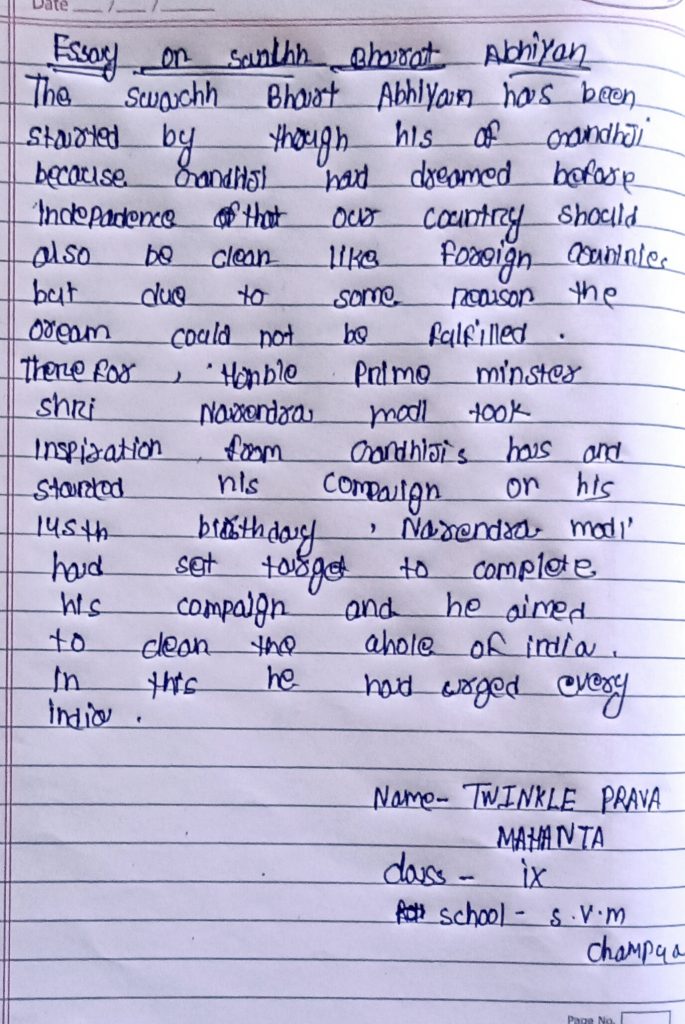 Date __/__/____
Essay on swachh Bharat Abhiyan
The swachh Bhart Abhiyan has been
started by though his of Gandhji
because Gandhiji had dreamed before
Indepadence of that our country should
also be clean like foreign Countries
but due to some reason the
dream could not be falfilled .
There for , Honble Prime minster
shri Narendra modi took
Inspiration from Gandhiji's has and
started his campaign on his
145th birthday , Narendra modi'
had set target to complete
his compaign and he aimed
to clean the ahole of india .
In this he had urged every
india .
Name- TWINKLE PRAVA
MAHANTA
class - ix
school - s.v.m
Champua
Page No.